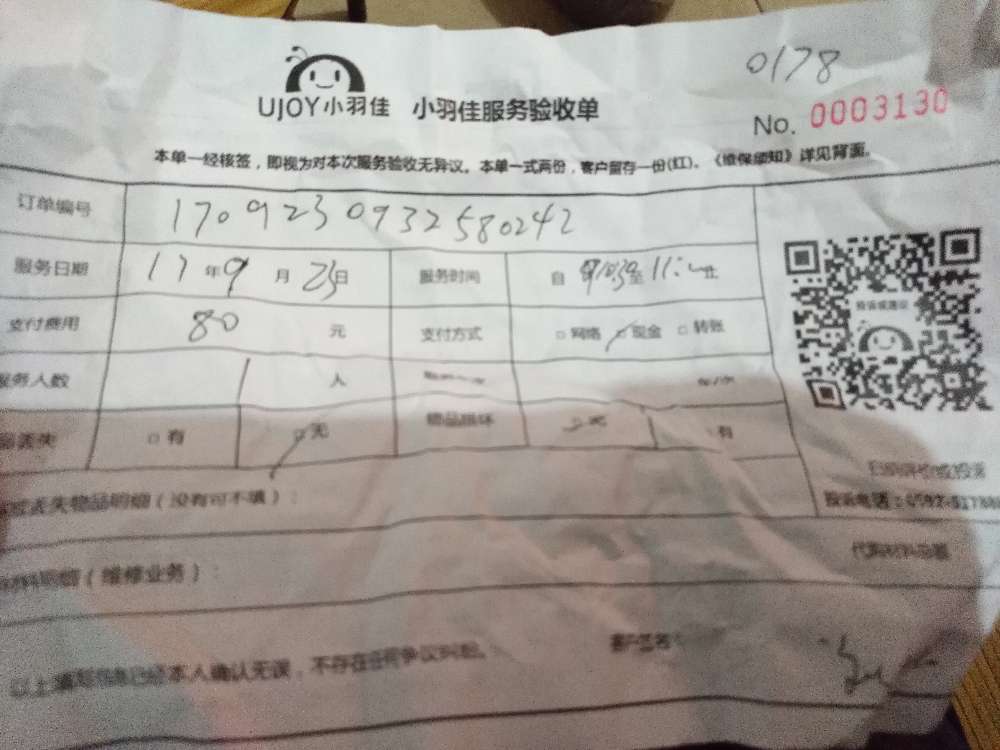 0178
UJOY小羽佳 小羽佳服务验收单
No. 0003130
本单一经核签，即视为对本次服务验收无异议。本单一式两份，客户留存一份(红)、《维保须知》详见背面。
订单编号 1709230932580242
服务日期 17年9月23日 服务时间 自 至 止
支付费用 80元 支付方式 □网络 □现金 □转账
投诉或建议
服务人数 1人
丢失 □有 □无 物品损坏 无 有
扫码评价或投诉
丢失物品明细（没有可不填）：
投诉电话：0592-
材料明细（维修业务）：
以上填写信息已经本人确认无误，不存在任何争议纠纷。 客户签名：